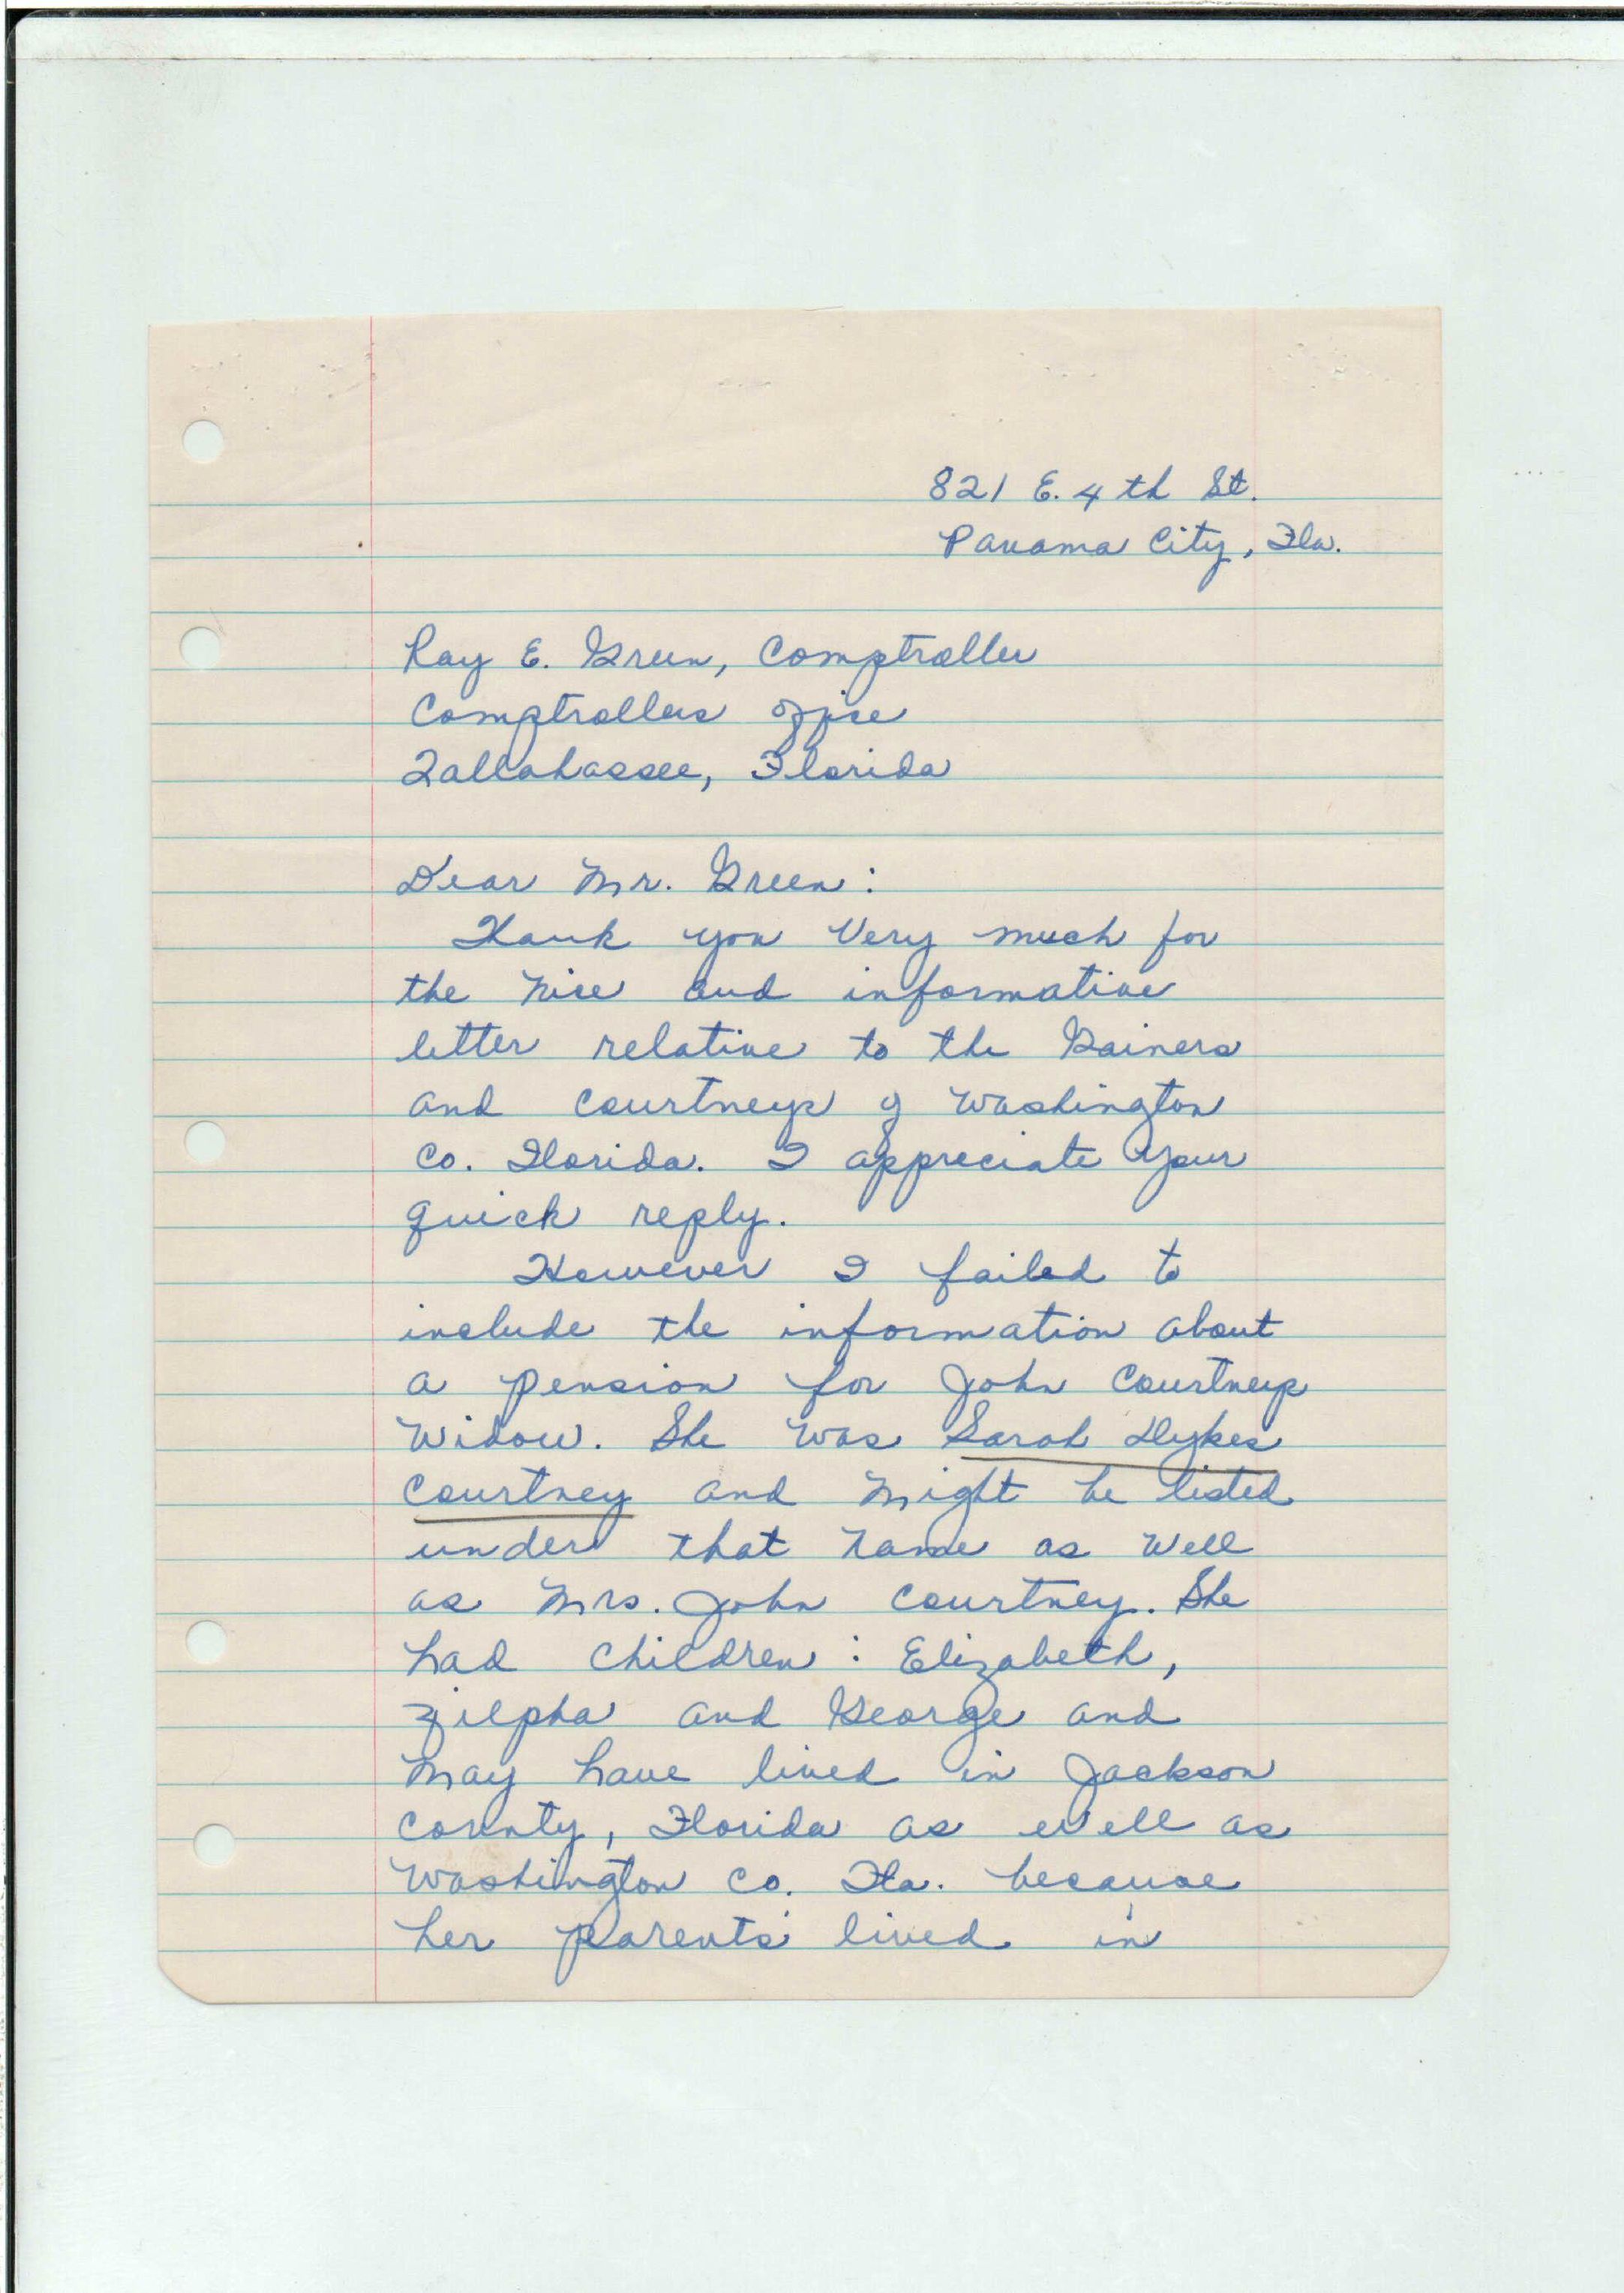 821 E. 4th St.
Panama City, Fla.
Ray E. Green, Comptroller
Comptrollers office
Tallahassee, Florida
Dear Mr. Green:
Thank you Very much for
the nice and informative
letter relative to the Gainers
and Courtneys of Washington
Co. Florida. I appreciate your
quick reply.
However I failed to
include the information about
a pension for John Courtneys
Widow. She was Sarah Dykes
Courtney and might be listed
under that name as well
as Mrs. John Courtney. She
had children: Elizabeth,
Zilpha and George and
may have lived in Jackson
County, Florida as well as
Washington Co. Fla. because
her parents lived in